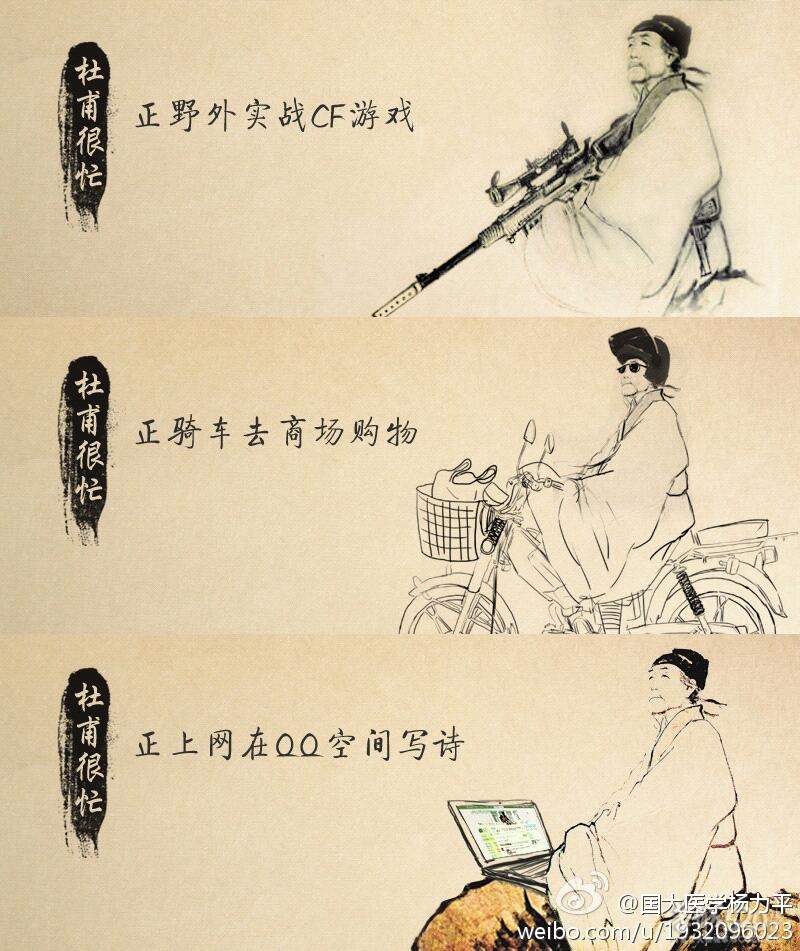 杜甫很忙
正野外实战CF游戏
杜甫很忙
正骑车去商场购物
杜甫很忙
正上网在QQ空间写诗
@国大医学杨力平
weibo.com/u/1932096023